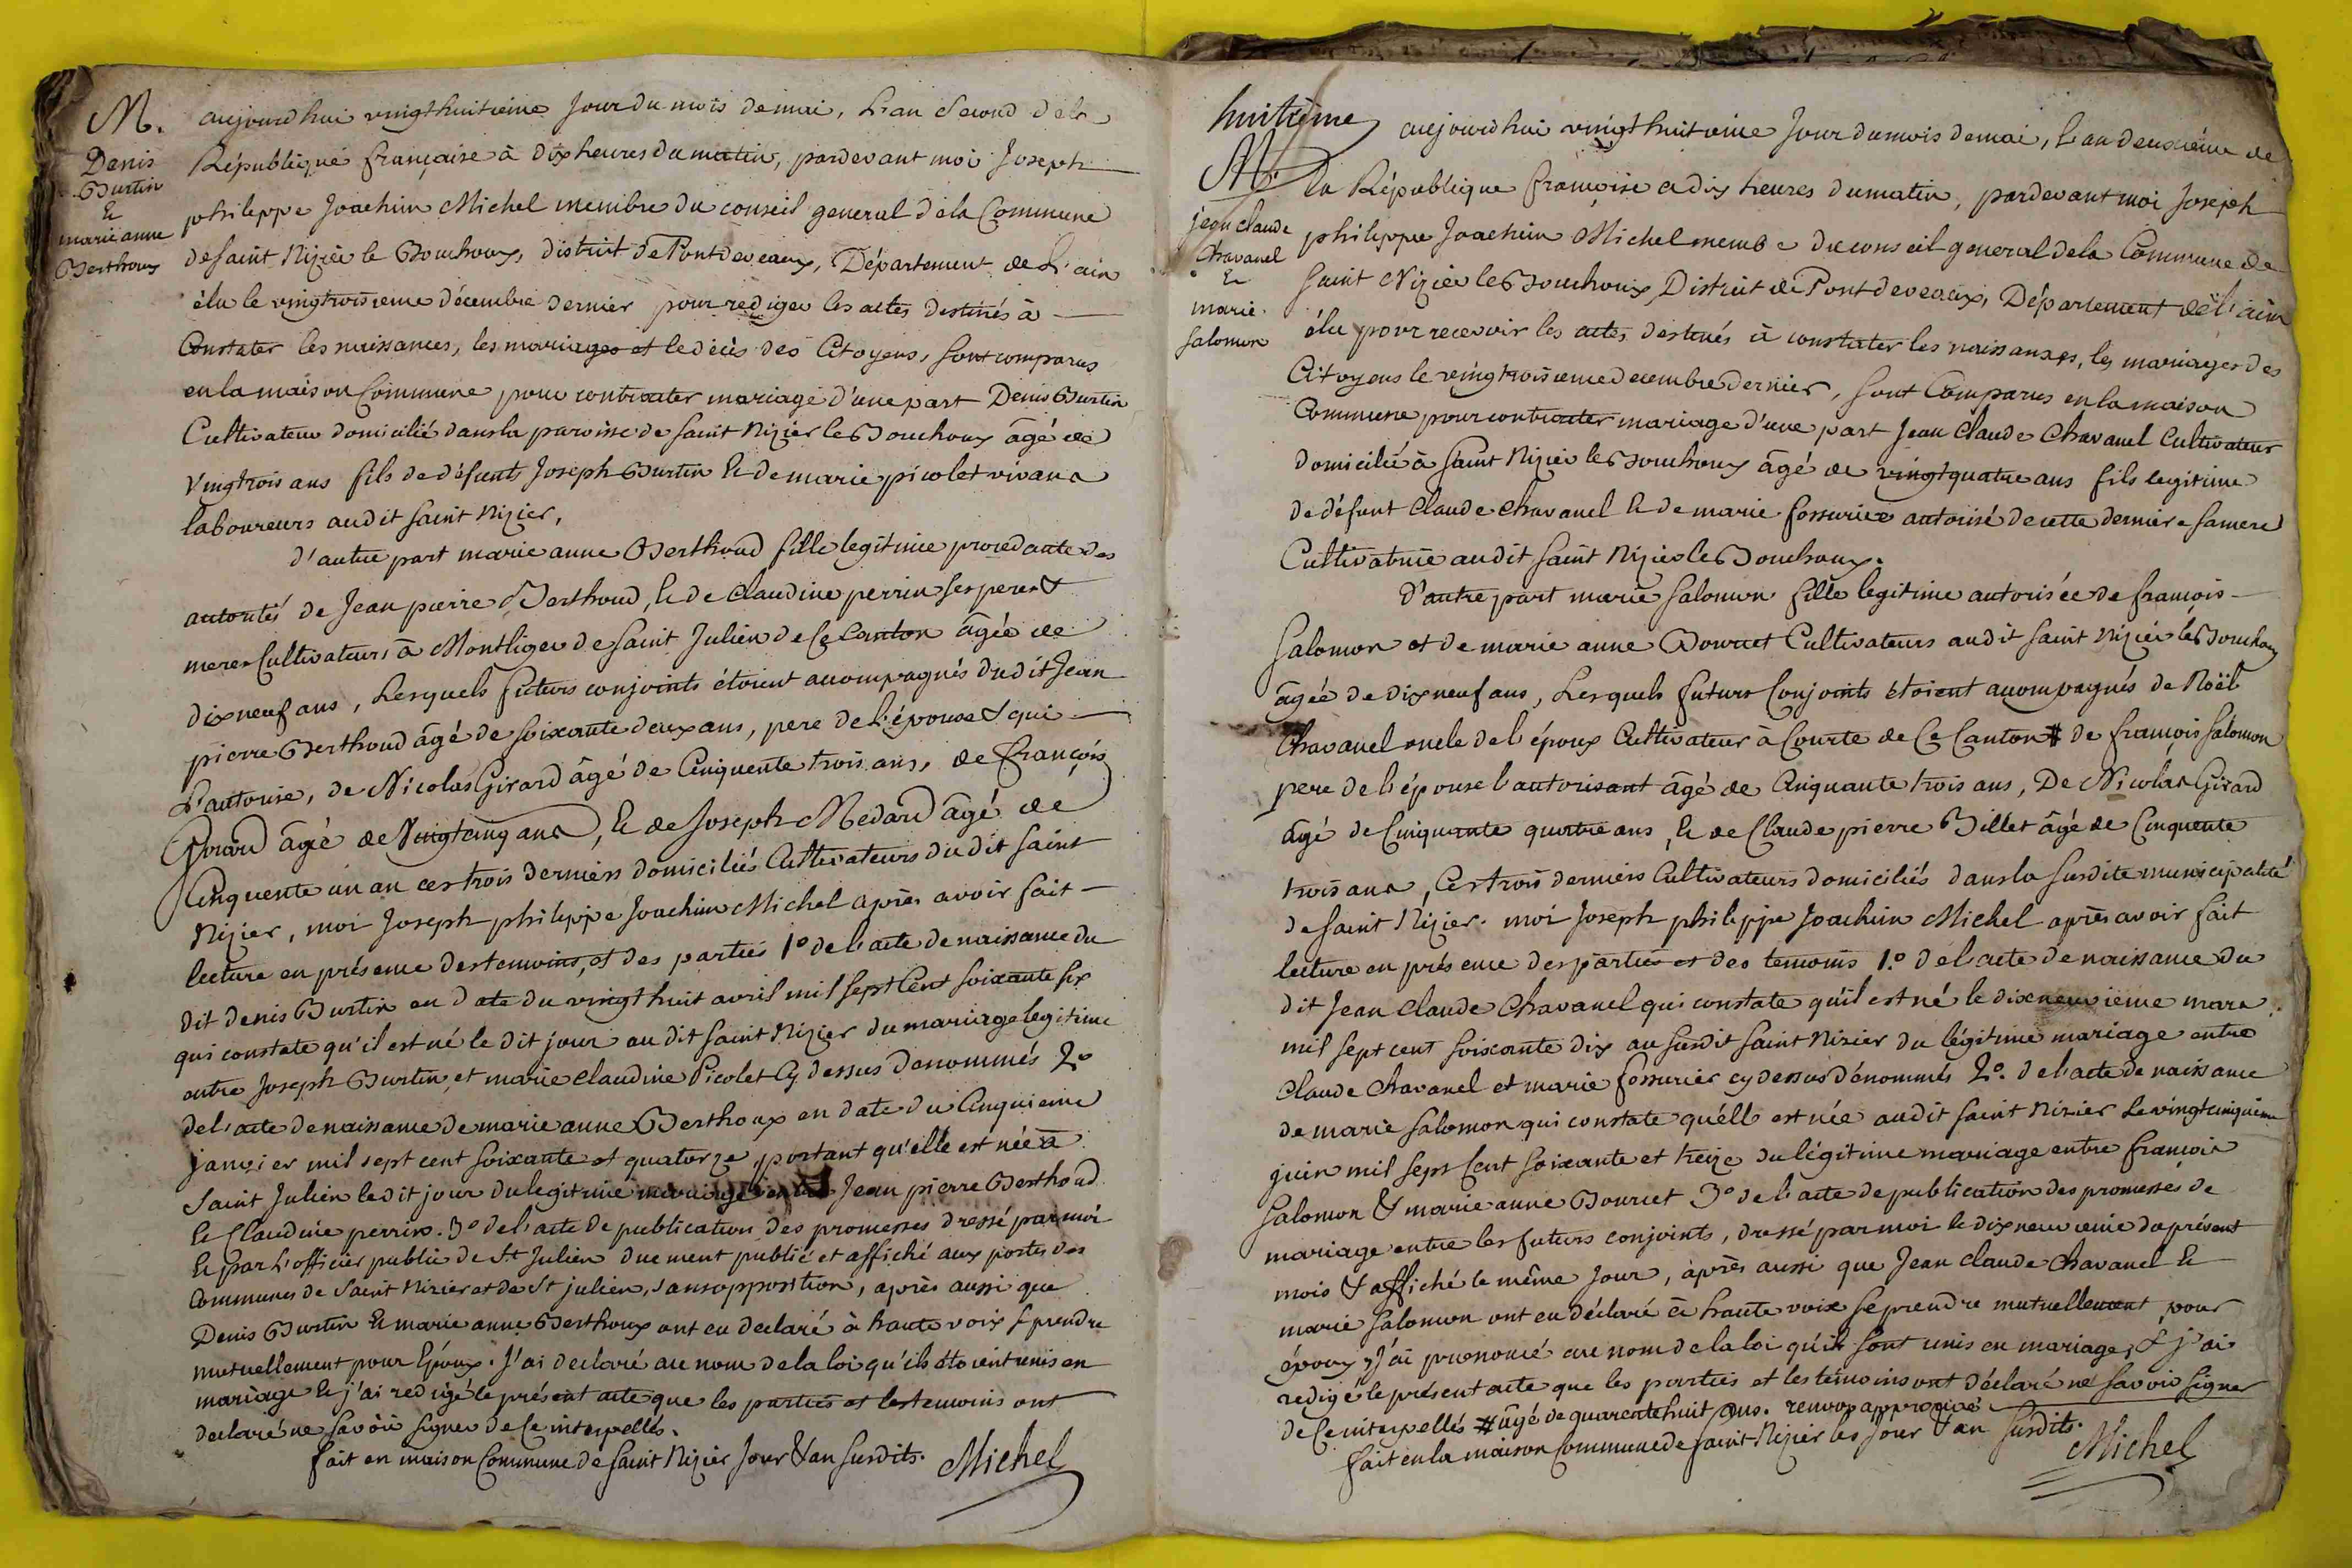 M.
Denis
Burtin
&
marie anne
Berthoux
aujourd'hui vingthuitieme Jour du mois de mai, L'an Second de la
République française à dix heures du matin, pardevant moi Joseph
philippe Joachim Michel membre du conseil general de la Commune
de saint Nizier le Bouchoux, district de Pontdeveaux, Département de L'ain
élu le vingtroisieme décembre dernier pour rediger les actes destinés à
Constater les naissances, les mariages et le décès des Citoyens, sont comparus
en la maison Commune pour contracter mariage d'une part Denis Burtin
Cultivateur domicilié dans la paroisse de saint Nizier le Bouchoux âgé de
Vingtrois ans fils de défunts Joseph Burtin & de marie picolet vivans
laboureurs audit saint Nizier,
d'autre part marie anne Berthoud fille legitime procedante des
autorités de Jean pierre Berthoud, & de Claudine perrin ses pere &
mere Cultivateurs à Montliger de saint Julien de Ce Canton âgée de
dixneuf ans, Lesquels futurs conjoints étoient accompagnés dudit Jean
pierre Berthoud âgé de soixante deux ans, pere de L'épouse & qui
L'autorise, de Nicolas Girard âgé de Cinquente trois ans, de François
Girard âgé de Vingtcinq ans, & de Joseph Medard âgé de
Cinquente un an ces trois derniers domiciliés Cultivateurs dudit saint
Nizier, moi Joseph philippe Joachim Michel après avoir fait
lecture en présence des temoins, et des parties 1º de l'acte de naissance du
dit denis Burtin en date du vingt huit avril mil sept Cent soixante six
qui constate qu'il est né le dit jour au dit saint Nizier du mariage legitime
entre Joseph Burtin, et marie claudine Picolet Cy dessus denommés 2º
de l'acte de naissance de marie anne Berthoux en date du Cinquieme
janvier mil sept cent soixante et quatorze, portant qu'elle est née à
saint Julien ledit jour du legitime mariage entre Jean pierre Berthoud
& Claudine perrin. 3º de l'acte de publication des promesses dressé par moi
& par L'officier public de St Julien duement publié et affiché aux portes des
Communes de saint Nizier et de St julien, sans opposition, après aussi que
Denis Burtin & marie anne Berthoux ont eu declaré à haute voix se prendre
mutuellement pour Epoux. J'ai declaré au nom de la loi qu'ils étoient unis en
mariage & j'ai redigé le présent acte que les parties et les temoins ont
declaré ne savoir signer de Ce interpellés.
fait en maison Commune de saint Nizier Jour & an susdits. Michel
huitieme
M.
jean claude
Chavanel
&
marie
salomon
aujourd'hui vingt huitieme Jour du mois de mai, L'an deuxieme de
la République françoise a dix heures du matin, pardevant moi Joseph
philippe Joachim Michel membre du conseil general de la Commune de
saint Nizier le Bouchoux, District de Pont deveaux, Département de L'ain
élu pour recevoir les actes destinés à constater les naissances, les mariages des
Citoyens le vingtroisieme decembre dernier, sont Comparus en la maison
Commune pour contracter mariage d'une part Jean Claude Chavanel Cultivateur
domicilié à saint Nizier le Bouchoux âgé de vingtquatre ans fils legitime
de défunt Claude Chavanel & de marie fossurier autorisé de cette derniere sa mere
Cultivatrice audit saint Nizier le Bouchoux.
D'autre part marie salomon fille legitime autorisée de françois
salomon et de marie anne Bourcet Cultivateurs audit saint Nizier le Bouchoux
âgée de dixneuf ans, Lesquels futurs Conjoints étoient accompagnés de Noël
Chavanel oncle de l'époux Cultivateur à Courte de Ce Canton # de françois salomon
pere de l'épouse l'autorisant âgé de Cinquante trois ans, De Nicolas Girard
âgé de Cinquante quatre ans, & de Claude pierre Billet âgé de Cinquente
trois ans, Ces trois derniers Cultivateurs domiciliés dans la susdite municipalité
de saint Nizier. moi Joseph philippe Joachim Michel après avoir fait
lecture en présence des parties et des temoins 1.º de l'acte de naissance du
dit Jean Claude Chavanel qui constate qu'il est né le dixneuvieme mars
mil sept cent soixante dix au susdit saint Nizier du légitime mariage entre
Claude Chavanel et marie fossurier cy dessus dénommés 2º. de l'acte de naissance
de marie salomon qui constate qu'elle est née audit saint Nizier le vingtcinquieme
juin mil sept Cent soixante et treize du légitime mariage entre françois
salomon & marie anne Bourcet 3º de l'acte de publication des promesses de
mariage entre les futurs conjoints, dressé par moi le dixneuvieme du présent
mois & affiché le même Jour, après aussi que Jean claude Chavanel &
marie salomon ont eu déclaré à haute voix se prendre mutuellement pour
époux, J'ai prononcé au nom de la loi qu'ils sont unis en mariage, & j'ai
redigé le présent acte que les parties et les temoins ont déclaré ne savoir signer
de Ce interpellés # âgé de quarentehuit ans. renvoy approuvé
fait en la maison Commune de saint Nizier les Jour & an susdits.
Michel